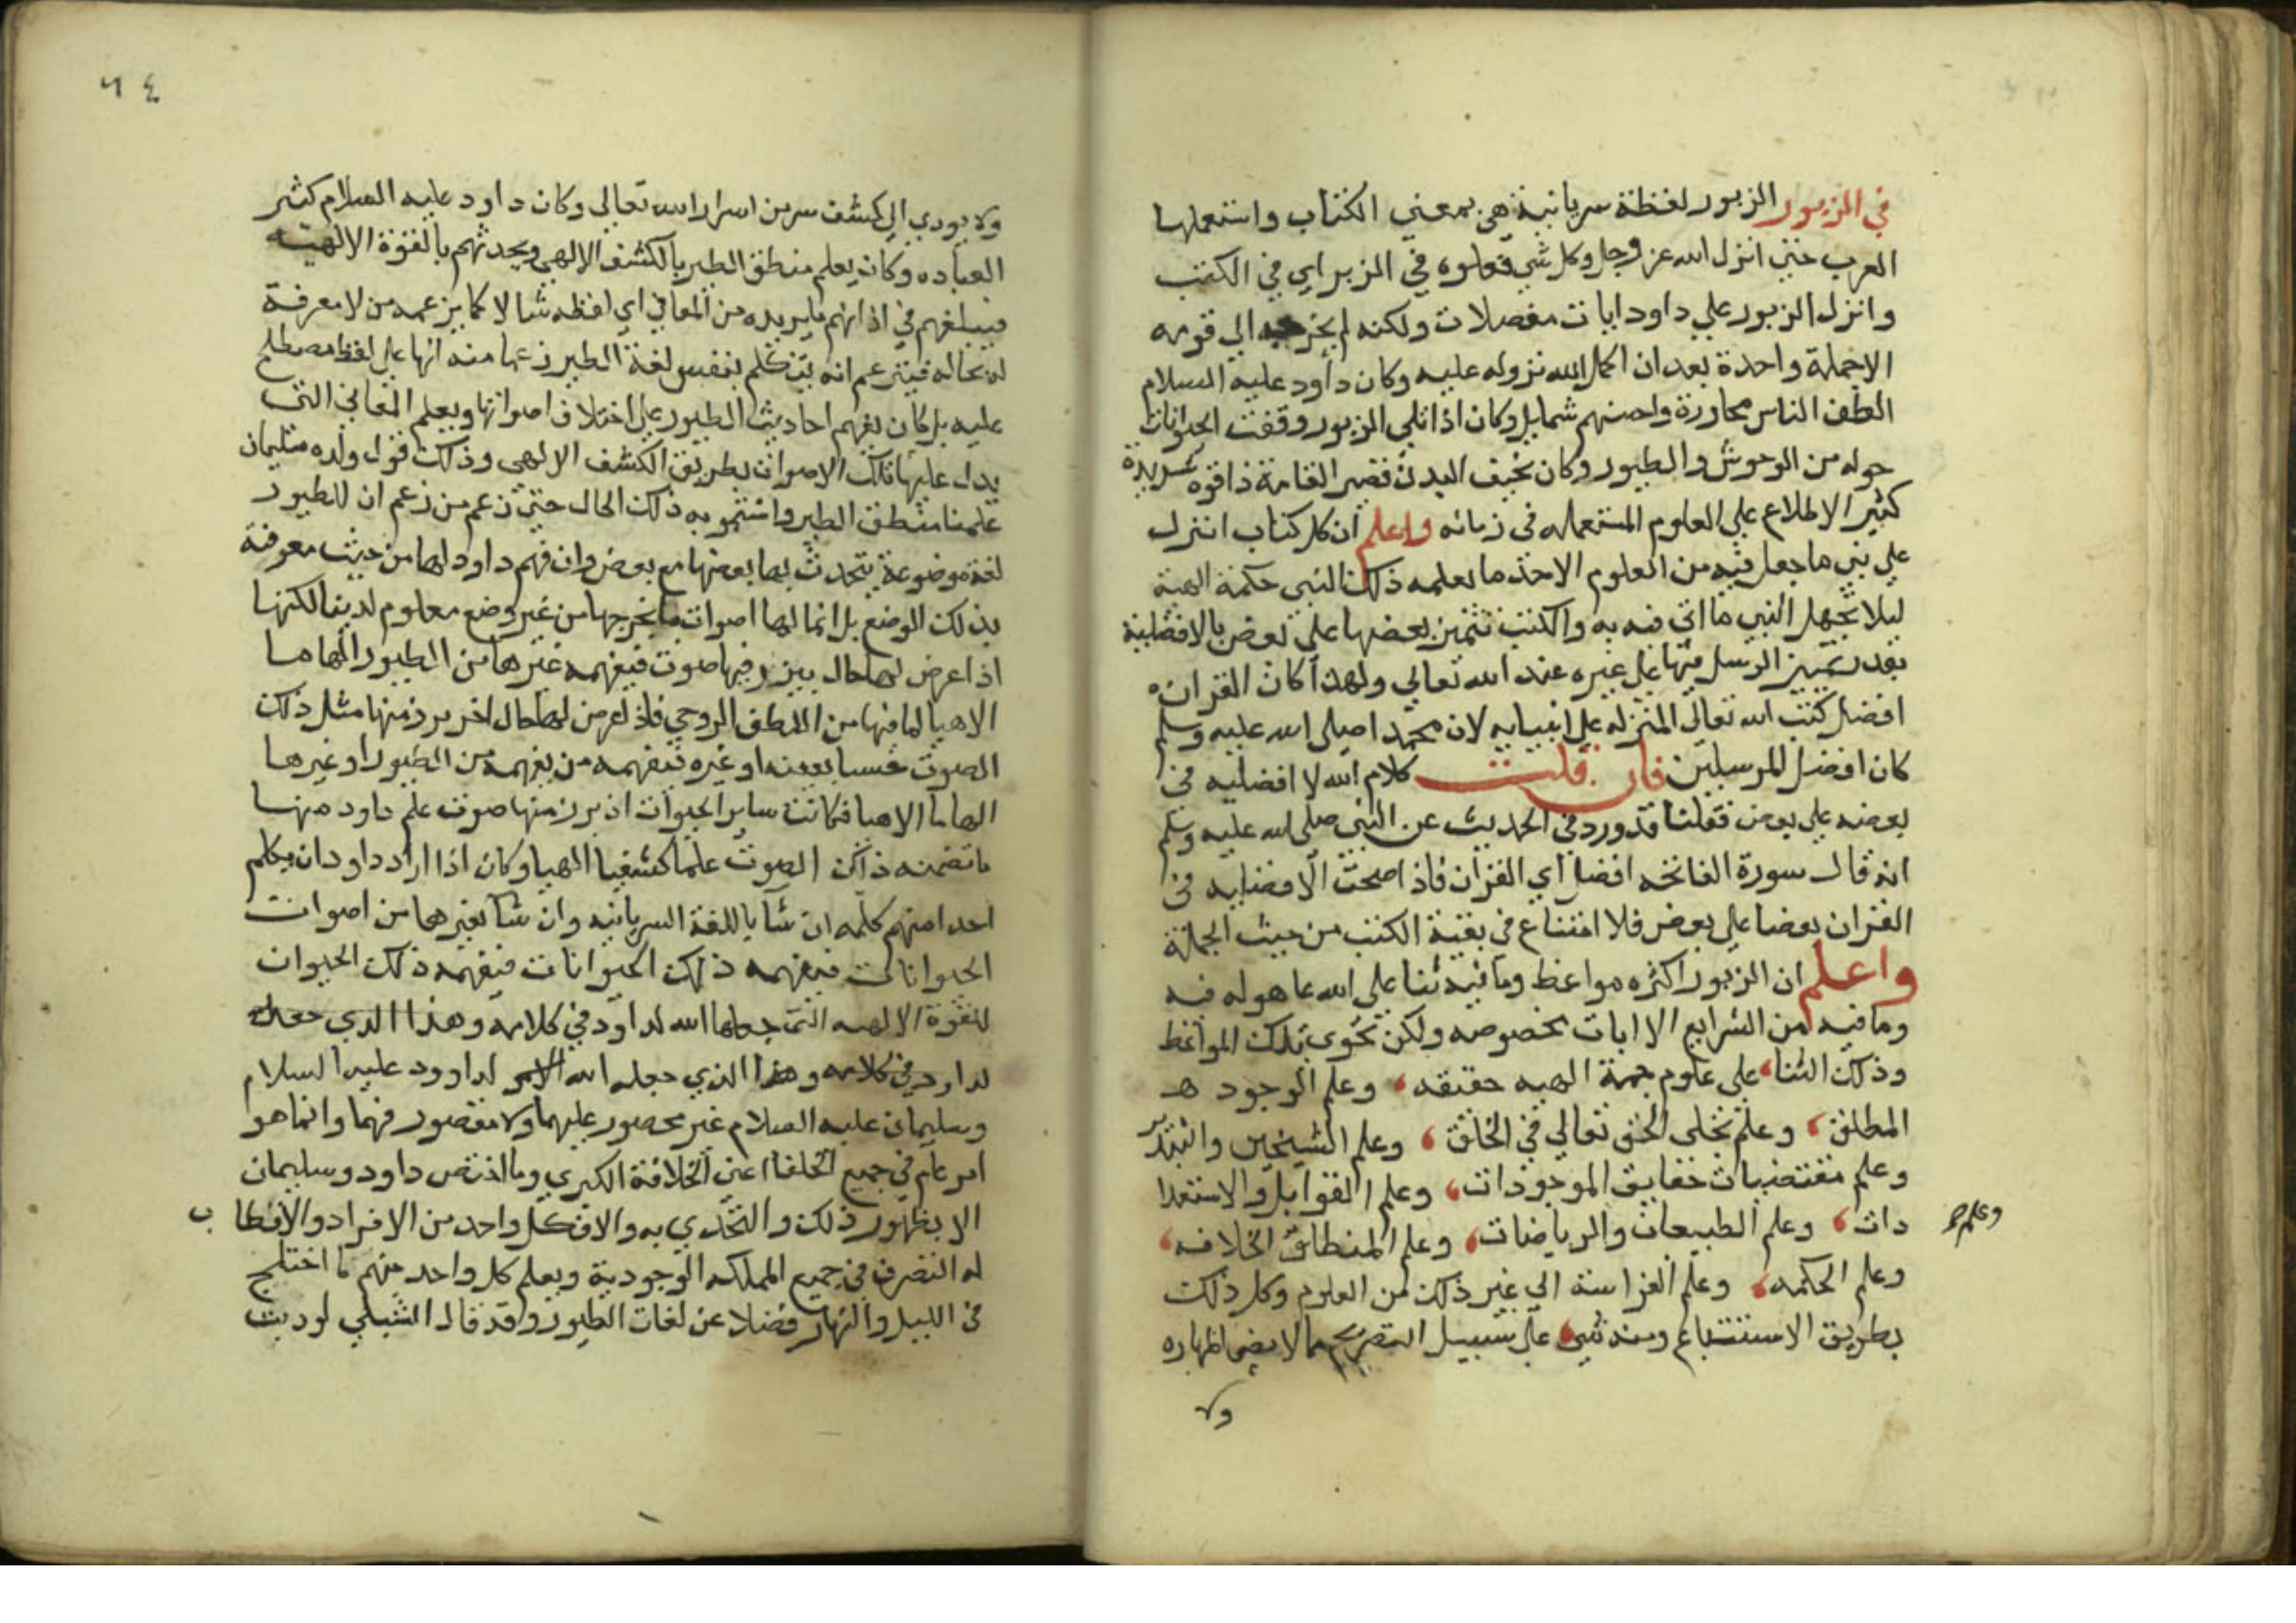 في الزبور الزبور لفظة سريانية هي بمعني الكتاب واستعملها
العرب حتى انزل الله عز وجل وكل شي فعلوه في الزبر اي في الكتب
وانزل الزبور علي داود ايات مفصلات ولكنه لم يخرجه الي قومه
الا جملة واحدة بعد ان اكمل الله نزوله عليه وكان داود عليه السلام
الطف الناس محاورة واحسنهم شمايل وكان اذا تلى الزبور وقفت الحيوانات
حوله من الوحوش والطيور وكان نحيف البدن قصير القامة ذا قوه شديدة
كثير الاطلاع علي العلوم المستعمله في زمانه واعلم ان كل كتاب انزل
علي نبي ما جعل فيه من العلوم الا حد ما يعلمه ذلك النبي حكمة الهية
ليلا يجهل النبي ما اتي فيه به والكتب تتميز بعضها علي بعض بالافضلية
بقدر تميز الرسل فيها علي غيره عند الله تعالي ولهذا كان القران
افضل كتب الله تعالى المنزله علي انبيايه لان محمدا صلى الله عليه وسلم
كان افضل المرسلين فان قلت كلام الله لا افضليه في
بعضه علي بعض فقلنا قد ورد في الحديث عن النبي صلى الله عليه وسلم
انه قال سورة الفاتحه افضل اي القران فاذا صحت الافضليه في
القران بعضا علي بعض فلا امتناع في بقية الكتب من حيث الجملة
واعلم ان الزبور اكثره مواعظ وما فيه ثنا علي الله بما هو له فيه
وما فيه من الشرايع الا ايات مخصوصه ولكن تحوى تلك المواعظ
وذلك الثنا على علوم جمة الهيه حقيقه وعلم الوجود هـ
المطلق وعلم تجلى الحق تعالي في الخلق وعلم التسخير والتدبير
وعلم مقتضيات حقايق الموجودات وعلم القوابل والاستعدا
دات وعلم الطبيعات والرياضات وعلم المنطق الخلافه
وعلم
وعلم الحكمه وعلم الفراسة الي غير ذلك من العلوم وكل ذلك
بطريق الاستتباع ومنه شي علي سبيل التصريح مما لا يضر اظهاره
ولا
٦٤
ولا يودي الي كشف سر من اسرار الله تعالي وكان داود عليه السلام كثير
العباده وكان يعلم منطق الطير بالكشف الالهي ويحدثهم بالقوة الالهية
فيبلغهم في اذانهم ما يريده من المعاني اي لفظه شا لا كما يزعمه من لا معرفة
له بحاله فيزعم انه يتكلم بنفس لغة الطير زعما منه انها علي لفظ مصطلح
عليه بل كان يفهم احاديث الطيور علي اختلاف اصواتها ويعلم المعاني التي
يدل عليها تلك الاصوات بطريق الكشف الالهي وذلك قول ولده سليمان
علمنا منطق الطير واستمر به ذلك الحال حتى زعم من زعم ان للطيور
لغة موضوعة يتحدث بها بعضها مع بعض وان فهم داود لها من حيث معرفة
بذلك الوضع بل انما لها اصوات ما يخرجها من غير وضع معلوم لدينا لكنها
اذا عرض لها حال يبرز فيها صوت فيفهمه غيرها من الطيور الهاما
الاهيا لما فيها من اللطف الروحي فاذا عرض لها حال اخر برز منها مثل ذلك
الصوت بعينه او غيره فيفهمه من يفهمه من الطيور او غيرها
الهاما الاهيا فكانت ساير الحيوانات اذ برز منها صوت علم داود منها
ما تضمنه ذلك الصوت علما كشفيا الهيا وكان اذا اراد داود ان يكلم
احدا منهم كلمه ان شا باللغة السريانيه وان شا بغيرها من اصوات
الحيوانات فيفهمه ذلك الحيوانات فيفهمه ذلك الحيوان
للقوة الالهيه التي جعلها الله لداود في كلامه وهذا الذي جعله
لداود في كلامه وهذا الذي جعله الله الامر لداوود عليه السلام
وسليمان عليه السلام غير محصور عليهما ولا مقصور فيهما وانما هو
امر عام في جميع الخلفا اعني الخلافة الكبري وما اختص داود وسليمان
الا بظهور ذلك والتحدي به والا فكل واحد من الافراد والاقطاب
له التصرف في جميع المملكه الوجودية ويعلم كل واحد منهم ما اختلج
في الليل والنهار فضلا عن لغات الطيور وقد قال الشبلي لو دبت